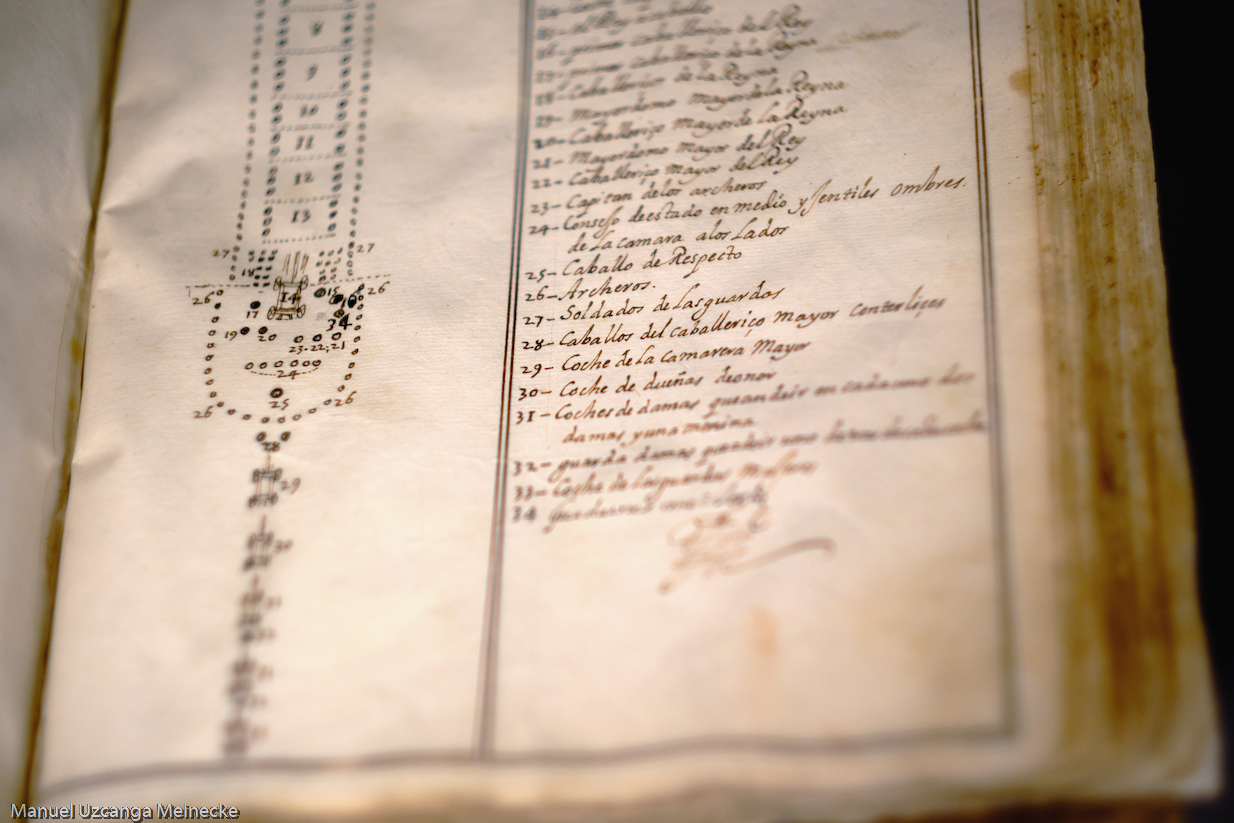 8
9
10
11
12
13
27 27
18
26 14 15 26
17 16
34
19 20
23-22-21
24
25
26 26
28
29
30
31
15- el Rey
16- primer caballeriço del Rey
17- primer caballeriço de la Reyna
18- Caballeriço de la Reyna
19- Mayordomo mayor de la Reyna
20- Caballeriço Mayor de la Reyna
21- Mayordomo Mayor del Rey
22- Caballeriço Mayor del Rey
23- Capitan delos archeros
24- Consejo de estado en medio y Jentiles ombres.
de la camara a los Lados
25- Caballo de Respecto
26- Archeros.
27- Soldados de las guardas
28- Caballos del caballeriço Mayor con terliçes
29- Coche de la camarera Mayor
30- Coche de dueñas de onor
31- Coches de damas que an de ir en cada uno dos
damas y una menina
32- guarda damas
33- Coche de las guardas Mayores
34
Manuel Uzcanga Meinecke